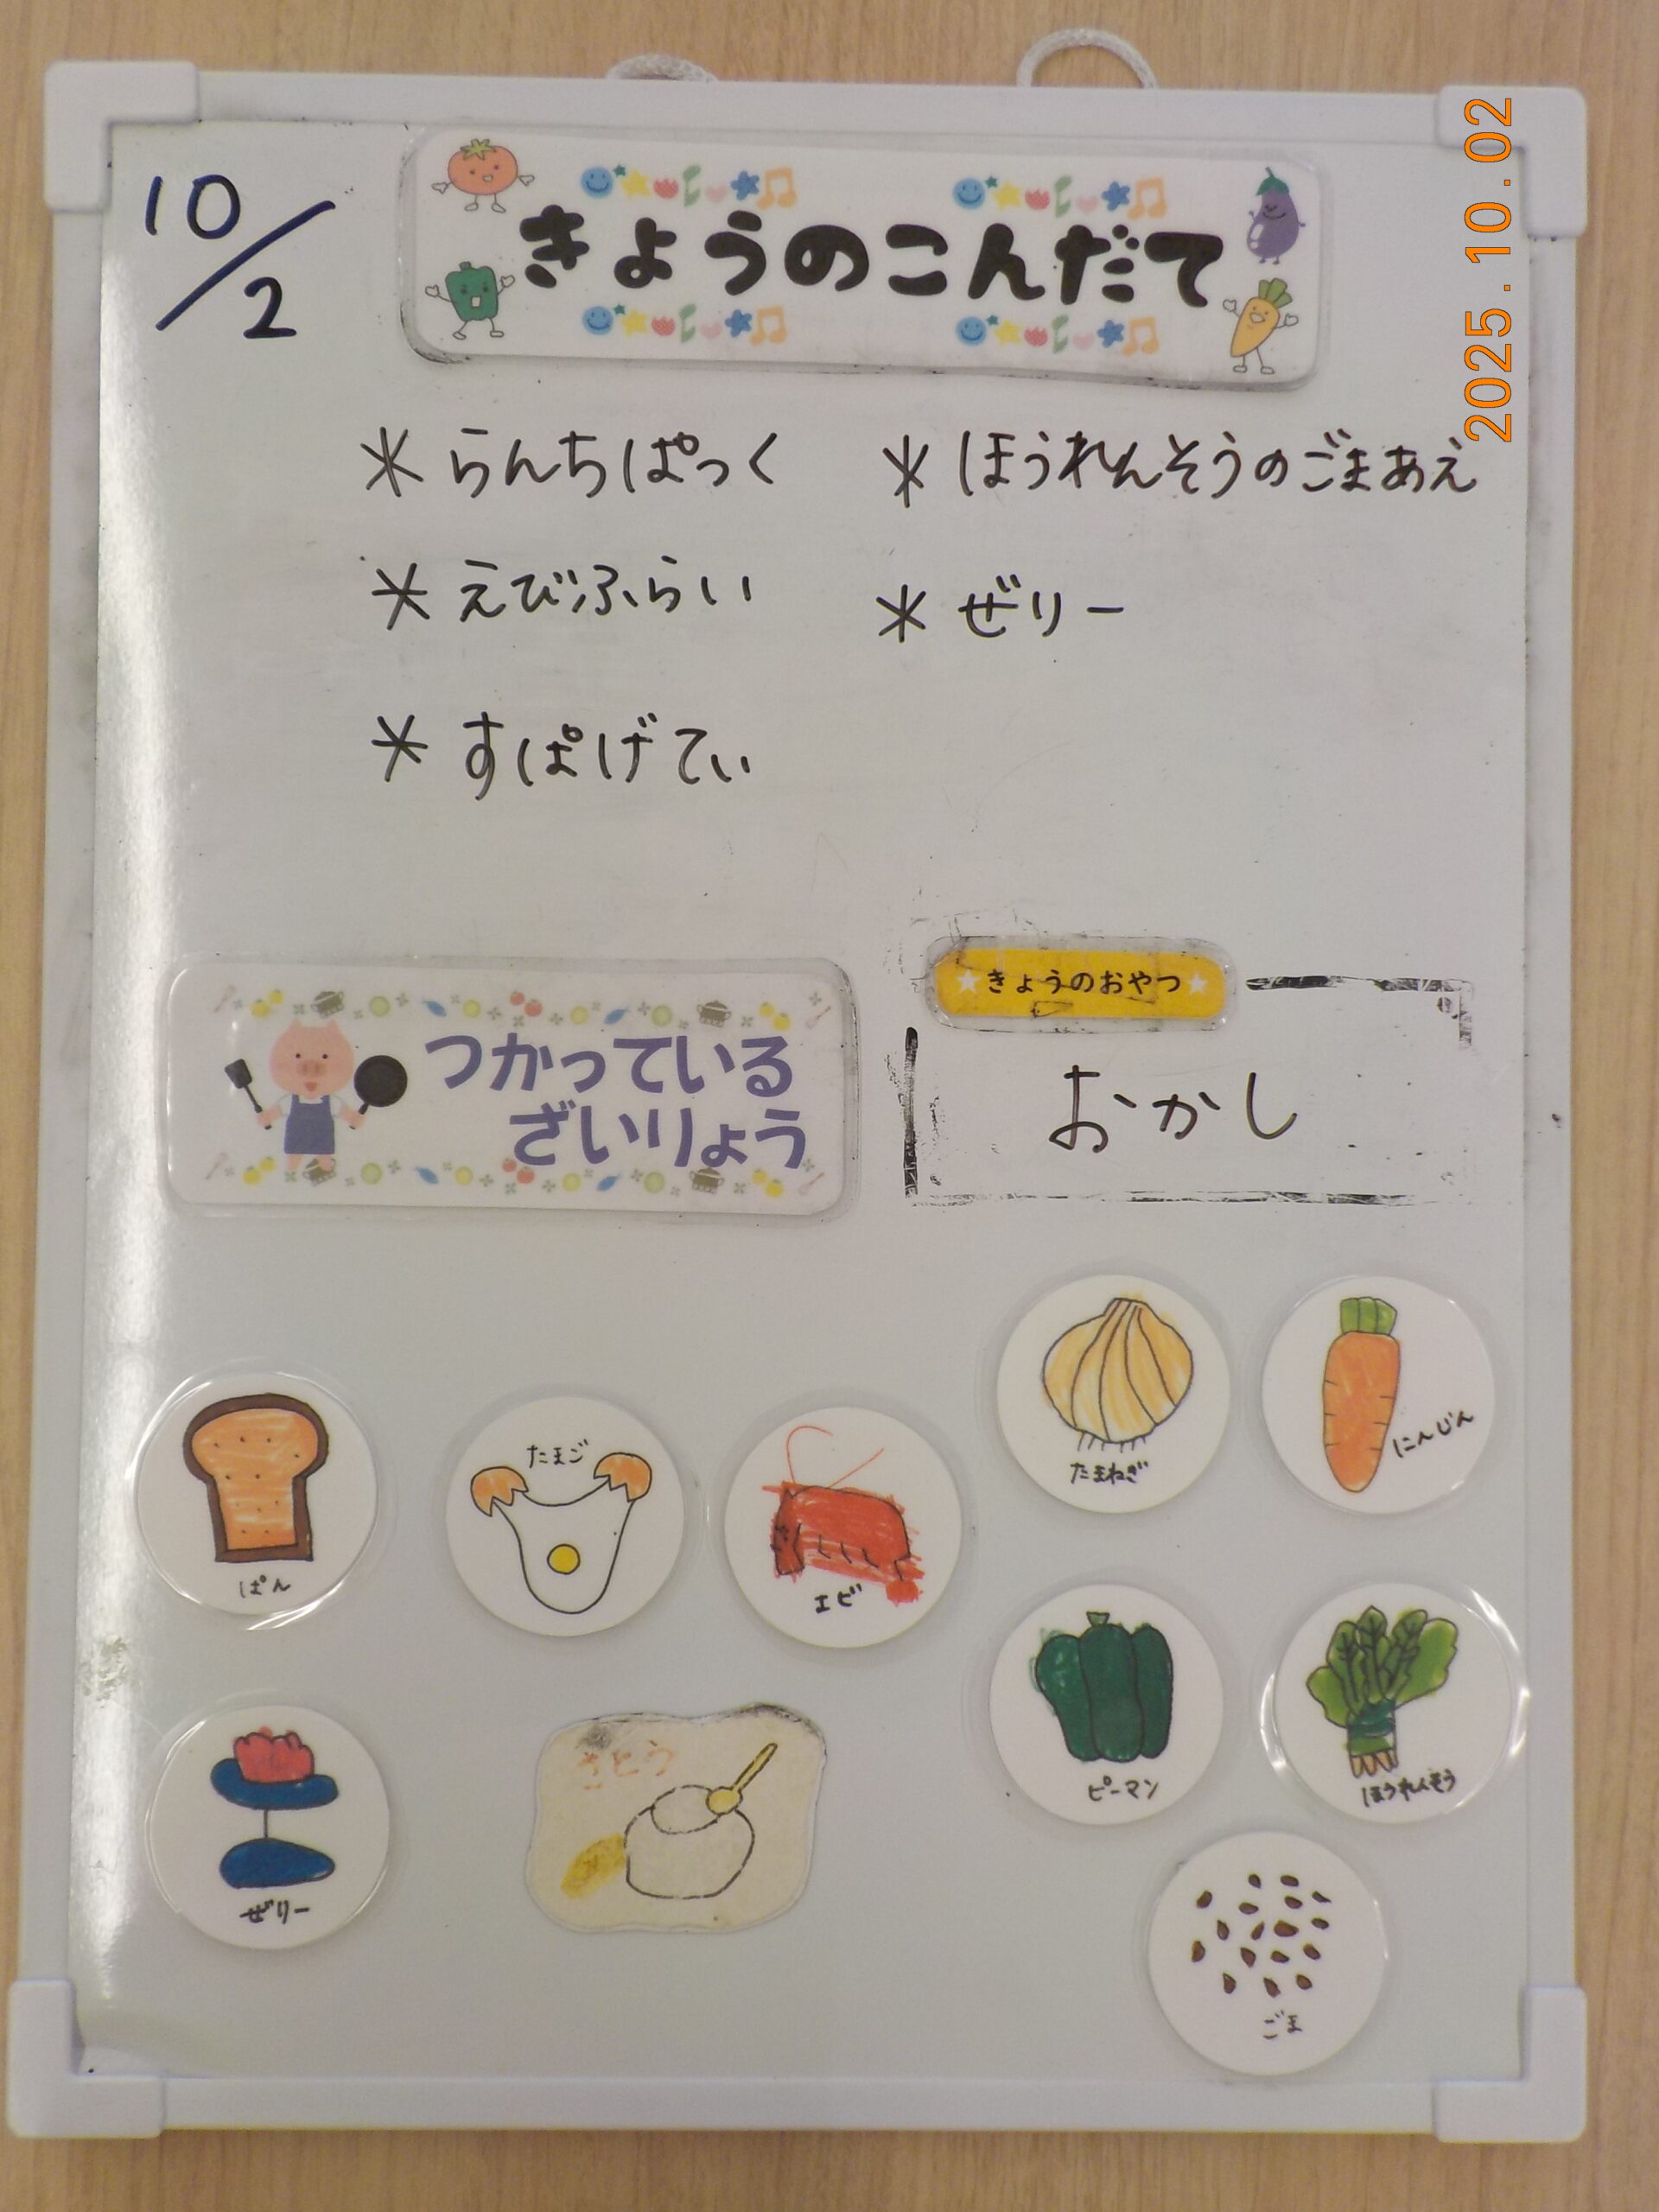 10/2
きょうのこんだて
2025.10.02
* らんちぱっく
* えびふらい
* すぱげてぃ
* ほうれんそうのごまあえ
* ぜりー
きょうのおやつ
おかし
つかっている
ざいりょう
ぱん
たまご
エビ
たまねぎ
にんじん
ぜりー
さとう
ピーマン
ほうれんそう
ごま